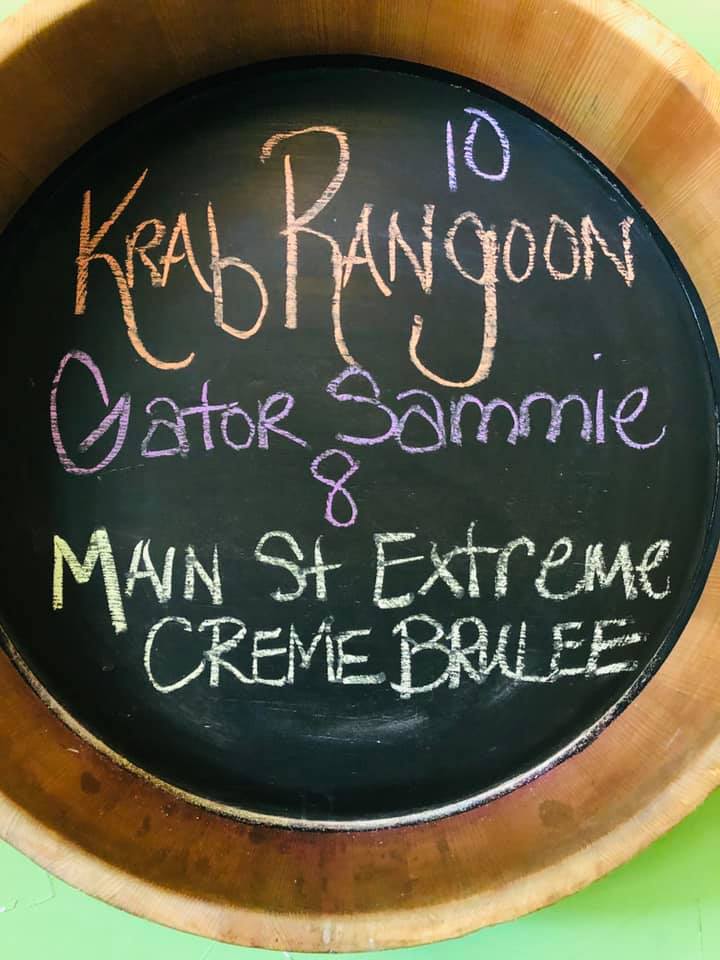 10
KRAb RANgOON
Gator Sammie
8
MAIN St Extreme
CREME BRULEE